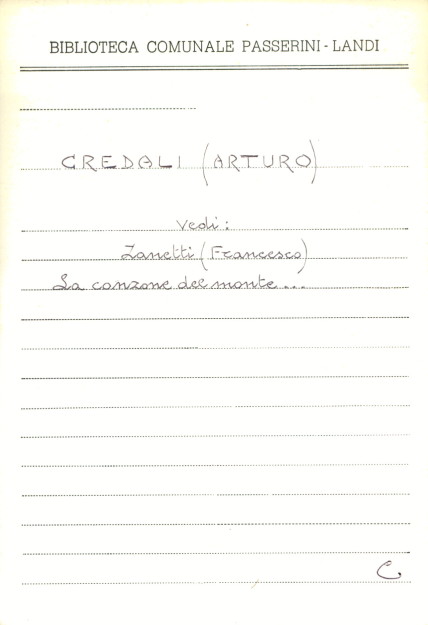 BIBLIOTECA COMUNALE PASSERINI - LANDI
CREDALI (ARTURO)
Vedi:
Zanetti (Francesco)
La canzone del monte...
C